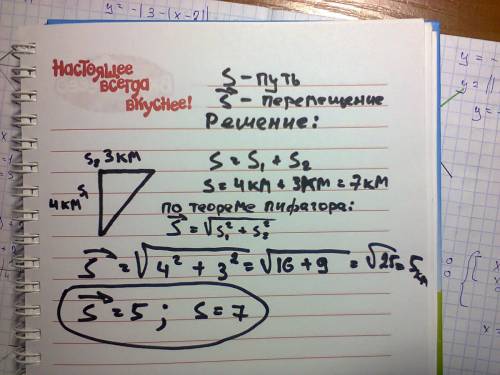 y = -|3-(x-2|
y = -
y = |
y = -
Настоящее
всегда
вкуснее!
S - путь
S⃗ - перемещение
Решение:
S₂ 3км
S₁
4км
S = S₁ + S₂
S = 4км + 3км = 7км
по теореме пифагора:
S⃗ = √(S₁² + S₂²)
S⃗ = √(4² + 3²) = √(16 + 9) = √25 = 5 км
S⃗ = 5 ; S = 7